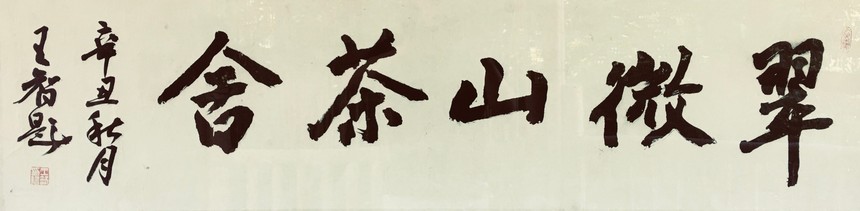 翠微山茶舍
辛丑秋月
王智题